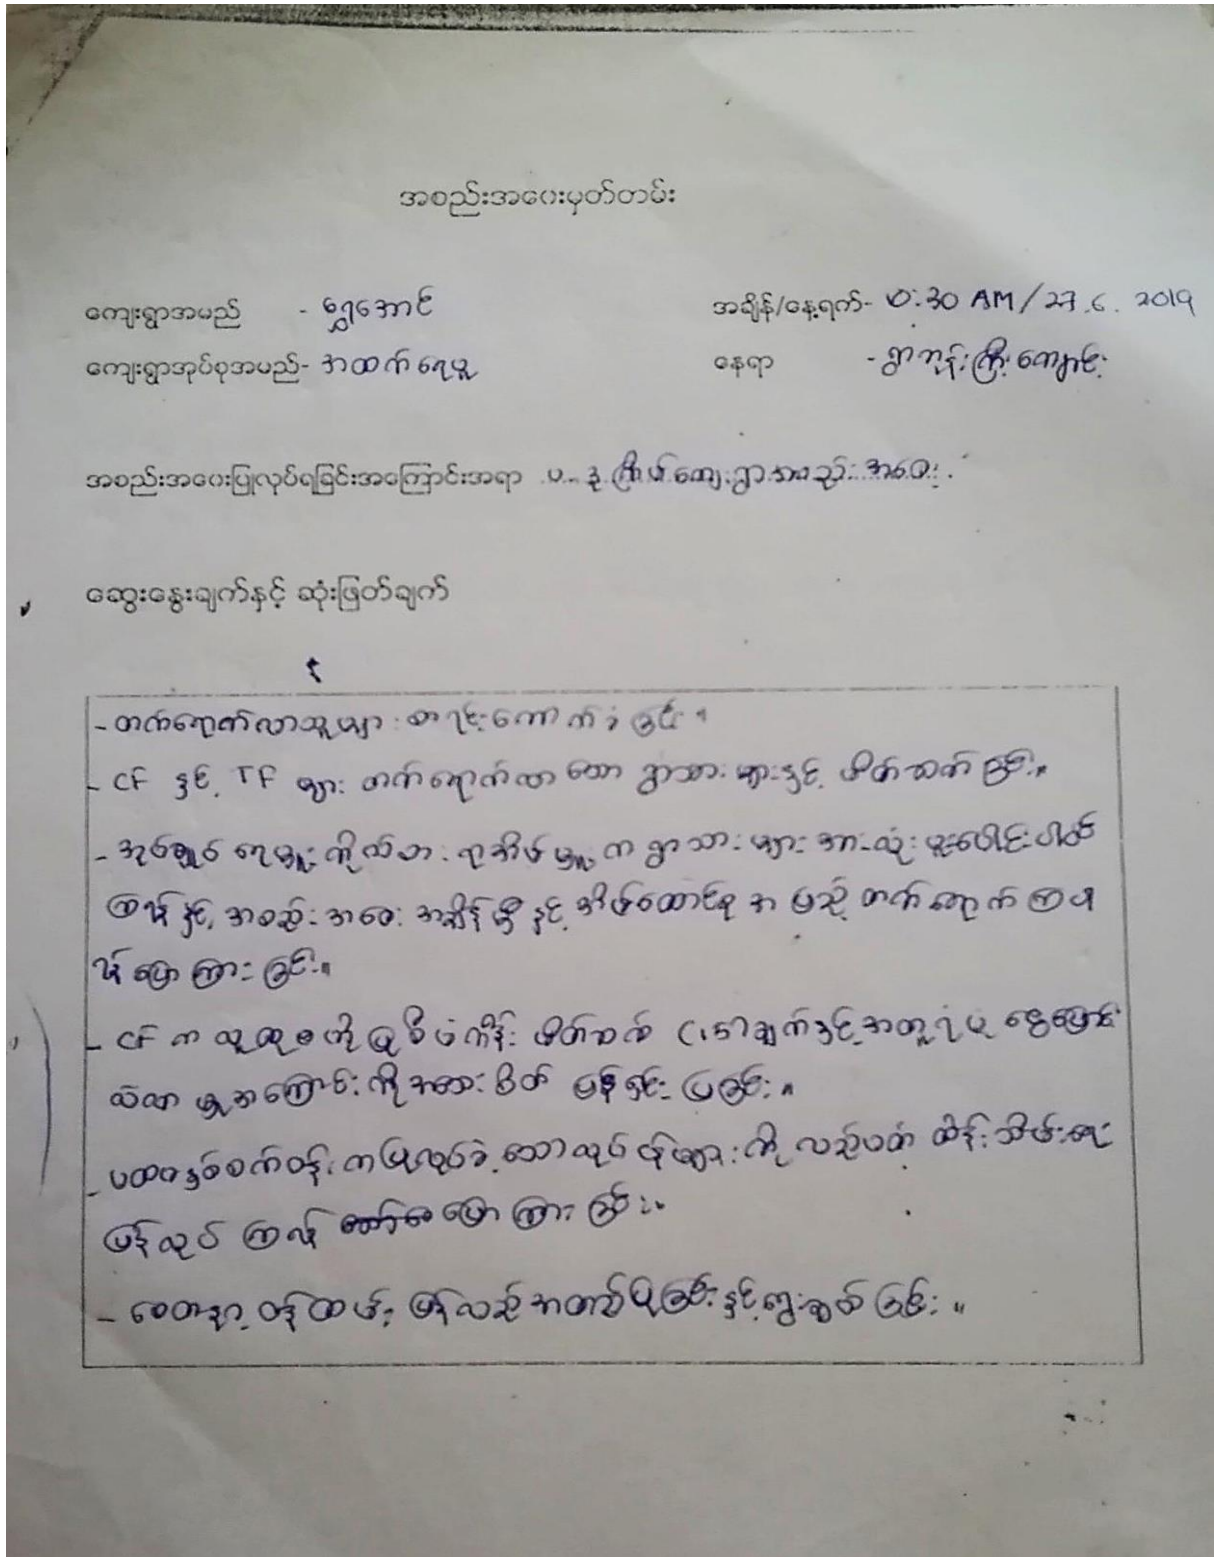 အစည်းအဝေးမှတ်တမ်း
ကျေးရွာအမည် - ရွှေအောင် အချိန်/နေ့ရက်- ၈:30 AM/27.6.2019
ကျေးရွာအုပ်စုအမည်- အထက်ရေဖြူ နေရာ - ရွာဘုန်းကြီးကျောင်း
အစည်းအဝေးပြုလုပ်ရခြင်းအကြောင်းအရာ ပ-ဒု ကြိမ်ကျေးရွာအစည်းအဝေး
ဆွေးနွေးချက်နှင့် ဆုံးဖြတ်ချက်
- တက်ရောက်လာသူများ စာရင်းကောက်ခံခြင်း။
- CF နှင့် TF များ တက်ရောက်လာသော ရွာသားများနှင့် မိတ်ဆက်ခြင်း။
- အုပ်ချုပ်ရေးမှူး ကိုယ်စား ရာအိမ်မှူးက ရွာသားများအားလုံး ပူးပေါင်းပါဝင်
ကြရန်နှင့် အစည်းအဝေး အချိန်မှီနှင့် အိမ်ထောင်စုအမည် တက်ရောက်ကြပါ
ရန်ပြောကြားခြင်း။
- CF က လူထုဗဟိုပြုစီမံကိန်း မိတ်ဆက် နှင့်အတူ ရံပုံငွေ
လာမှုအကြောင်းကိုအသေးစိတ် ရှင်းပြခြင်း။
- ပထမနှစ်စက်ဝန်းကပြုလုပ်ခဲ့သောလုပ်ငန်းများကို လည်ပတ် ထိန်းသိမ်းရေး
ပြန်လုပ်ကြရန် ပြောကြားခြင်း။
- စေတနာ့ဝန်ထမ်း ပြန်လည်အတည်ပြုခြင်းနှင့်ရွေးချယ်ခြင်း။